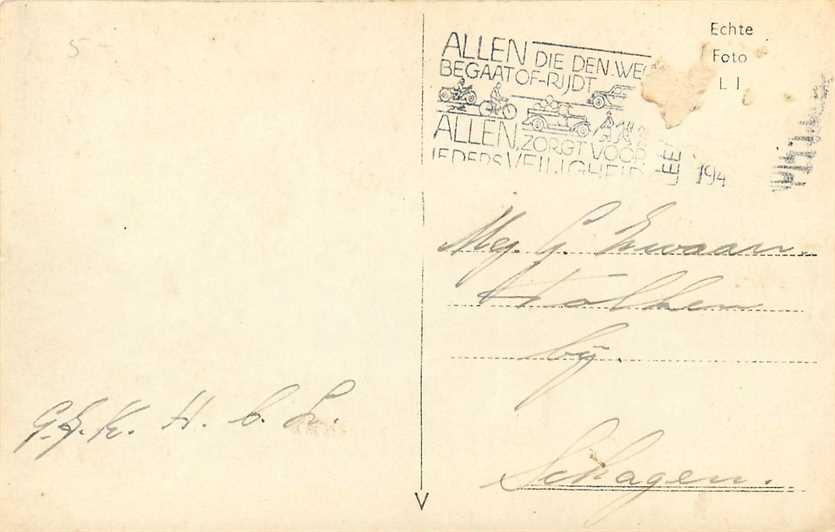 5-
ALLEN DIE DEN WEG
BEGAAT OF-RIJDT
ALLEN, ZORGT VOOR
IEDERS VEILIGHEID
LEE
194
Echte
Foto
L I
Mej. G. Zwaan.
bij.
Schagen.
G. G. K. H. b. L.
V